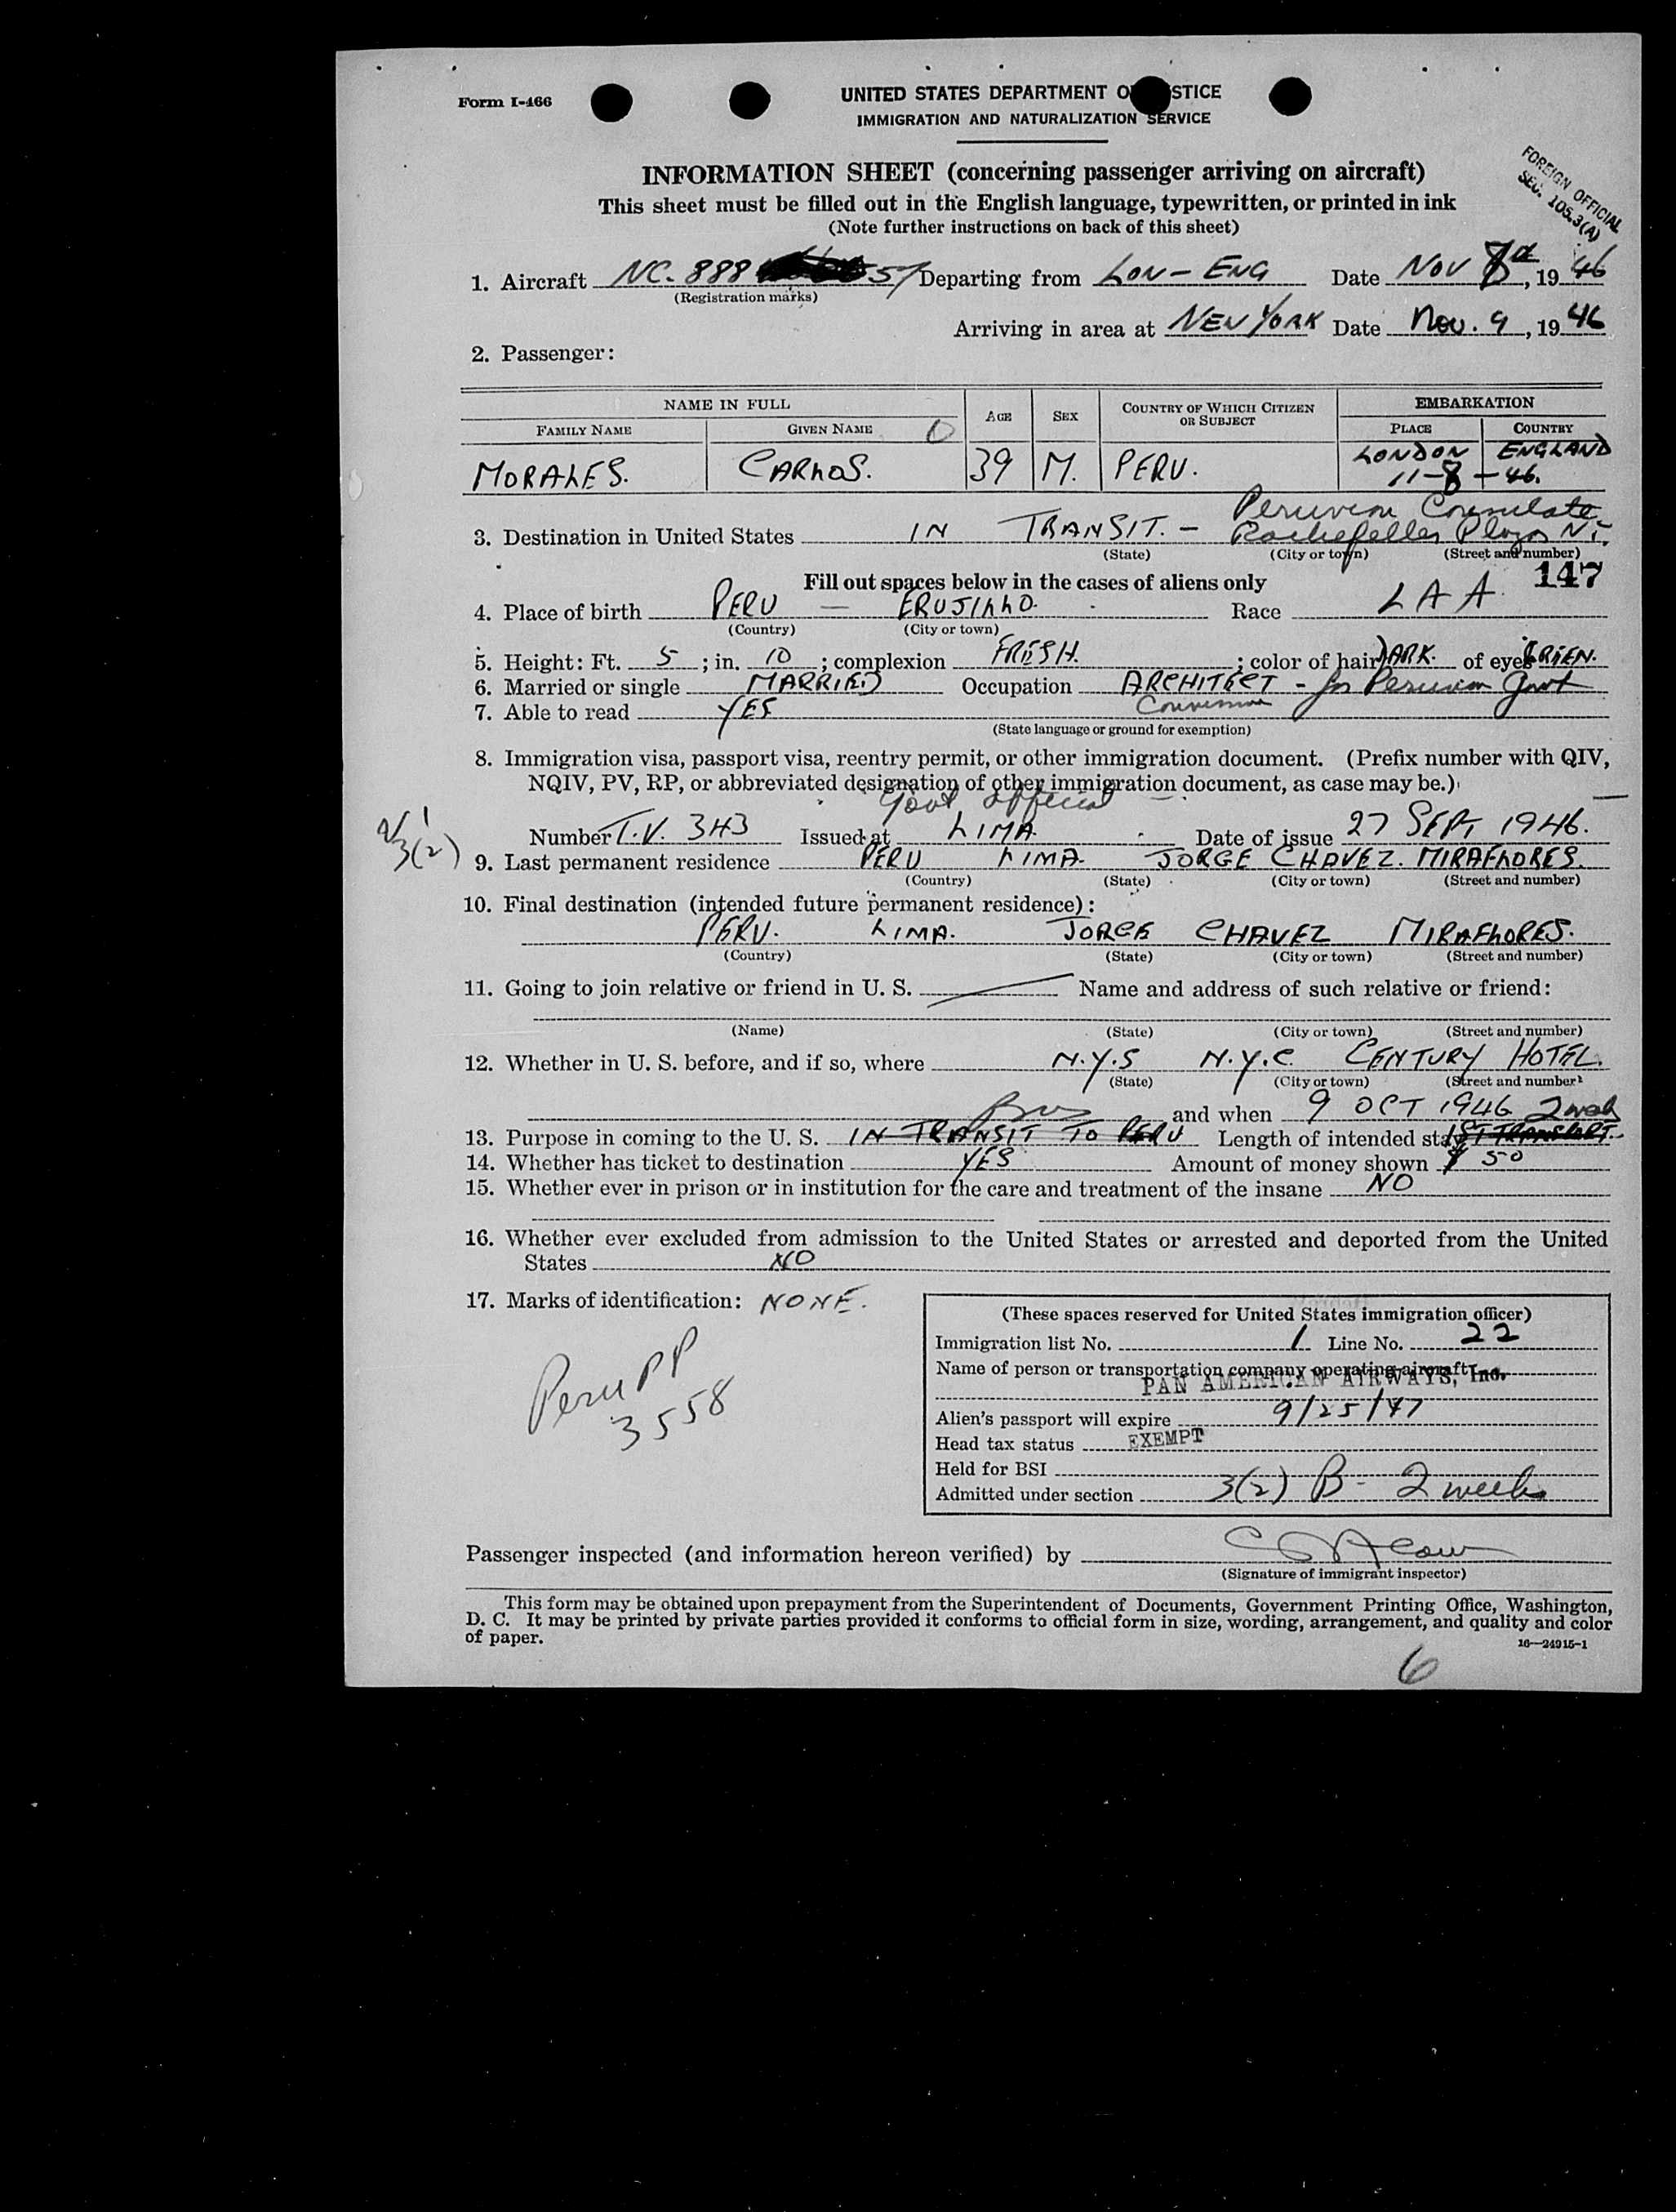 Form I-466
UNITED STATES DEPARTMENT O STICE
IMMIGRATION AND NATURALIZATION SERVICE
INFORMATION SHEET (concerning passenger arriving on aircraft)
FOREIGN OFFICIAL
SEC. 105.3(A)
This sheet must be filled out in the English language, typewritten, or printed in ink
(Note further instructions on back of this sheet)
1. Aircraft NC. 888 57 Departing from LON - ENG Date NOV 8, 19 46
(Registration marks)
Arriving in area at NEW YORK Date Nov. 9, 19 46
2. Passenger:
NAME IN FULL AGE SEX COUNTRY OF WHICH CITIZEN OR SUBJECT EMBARKATION
FAMILY NAME GIVEN NAME PLACE COUNTRY
MORALES. CARLOS. 39 M. PERU. LONDON ENGLAND
11-8-46.
Peruvian Consulate
3. Destination in United States IN TRANSIT. - Rockefeller Plaza N.Y.
(State) (City or town) (Street and number)
Fill out spaces below in the cases of aliens only 147
4. Place of birth PERU — Race L A A
(Country) (City or town)
5. Height: Ft. 5; in. 10; complexion FRESH. ; color of hair DARK. of eyes
6. Married or single MARRIED Occupation ARCHITECT - for Peruvian Govt
7. Able to read YES
(State language or ground for exemption)
8. Immigration visa, passport visa, reentry permit, or other immigration document. (Prefix number with QIV,
NQIV, PV, RP, or abbreviated designation of other immigration document, as case may be.)
Govt official
3(2)
Number T.V. 343 Issued at LIMA. Date of issue 27 SEPT 1946.
9. Last permanent residence PERU LIMA. JORGE CHAVEZ. MIRAFLORES.
(Country) (State) (City or town) (Street and number)
10. Final destination (intended future permanent residence):
PERU. LIMA. JORGE CHAVEZ MIRAFLORES.
(Country) (State) (City or town) (Street and number)
11. Going to join relative or friend in U. S. Name and address of such relative or friend:
(Name) (State) (City or town) (Street and number)
12. Whether in U. S. before, and if so, where N.Y.S N.Y.C. CENTURY HOTEL.
(State) (City or town) (Street and number)
Bus and when 9 OCT 1946 2 week
13. Purpose in coming to the U. S. IN TRANSIT TO PERU Length of intended stay
14. Whether has ticket to destination YES Amount of money shown $ 50
15. Whether ever in prison or in institution for the care and treatment of the insane NO
16. Whether ever excluded from admission to the United States or arrested and deported from the United
States NO
17. Marks of identification: NONE.
Peru PP
3558
(These spaces reserved for United States immigration officer)
Immigration list No. 1 Line No. 22
Name of person or transportation company operating aircraft
PAN AMERICAN AIRWAYS, Inc.
Alien's passport will expire 9/25/47
Head tax status EXEMPT
Held for BSI
Admitted under section 3(2) B - 2 weeks
Passenger inspected (and information hereon verified) by
(Signature of immigrant inspector)
This form may be obtained upon prepayment from the Superintendent of Documents, Government Printing Office, Washington,
D. C. It may be printed by private parties provided it conforms to official form in size, wording, arrangement, and quality and color
of paper.
16—24915-1
6